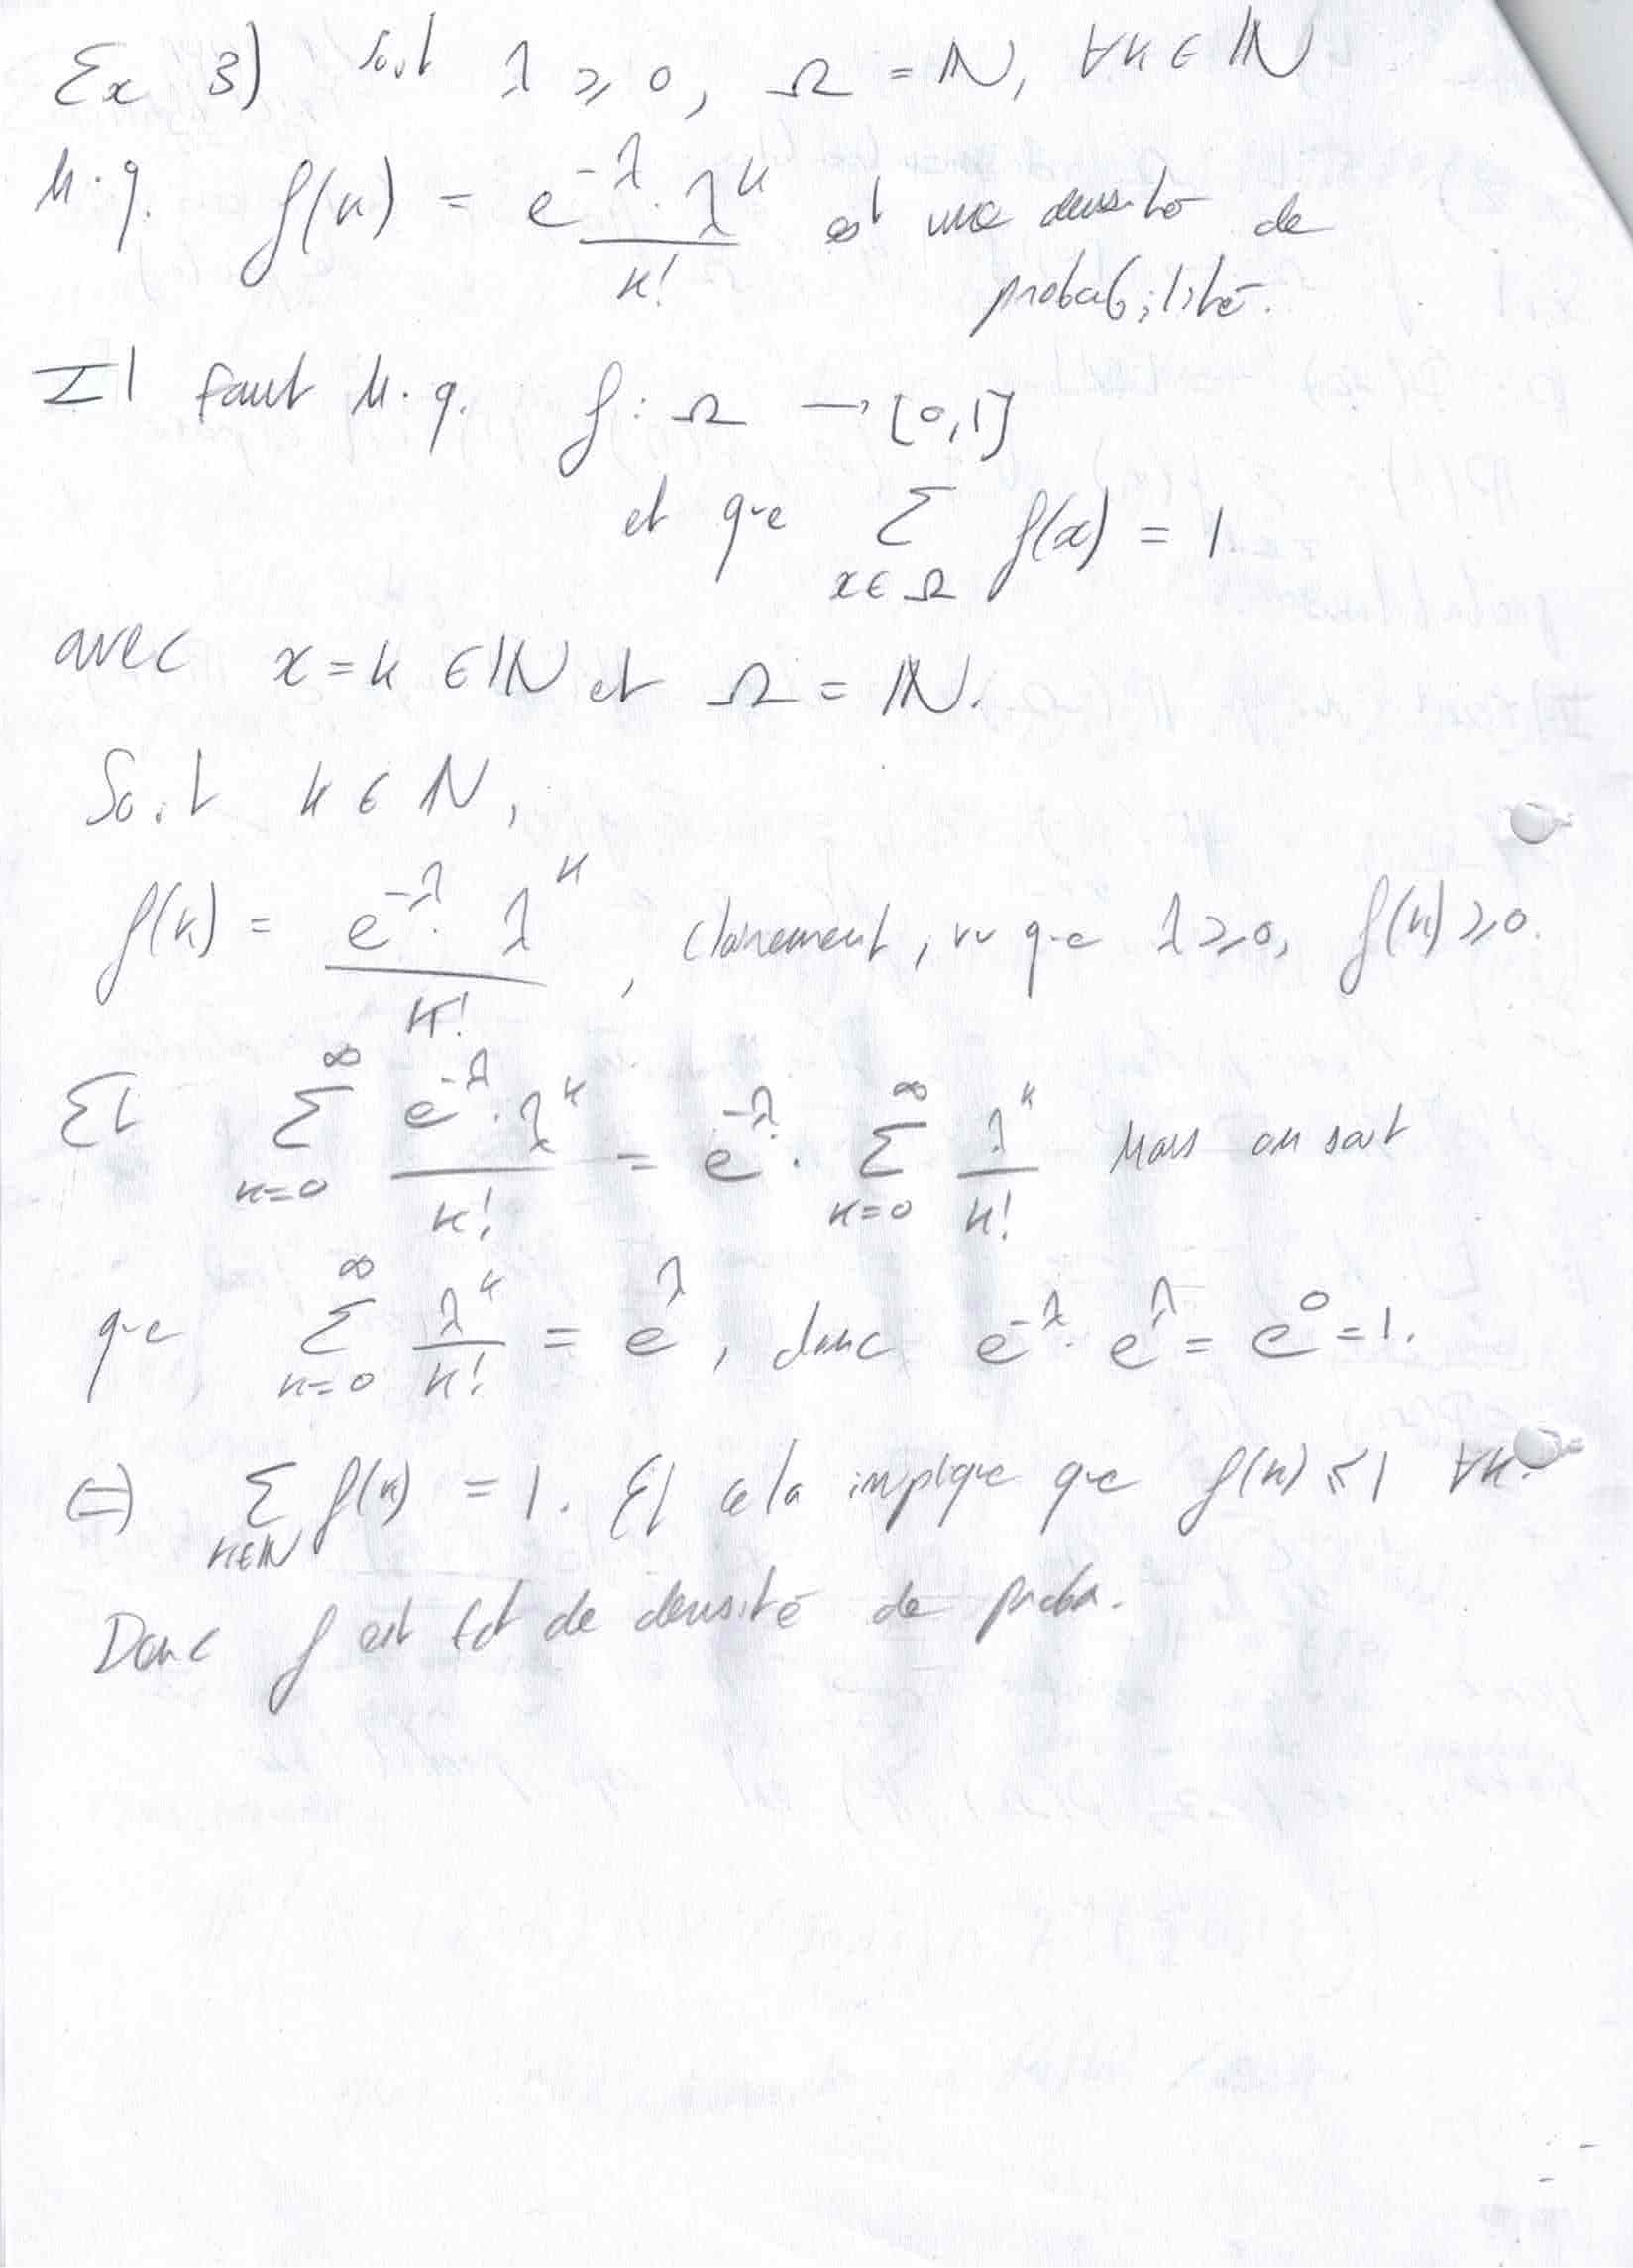 Ex 3) Soit λ ⩾ 0, Ω = ℕ, ∀k ∈ ℕ
M.q. f(k) = e^{-λ} · λ^k / k! est une densité de
probabilité.
Il faut M.q. f : Ω → [0,1]
et que Σ_{x∈Ω} f(x) = 1
avec x = k ∈ ℕ et Ω = ℕ.
Soit k ∈ N,
f(k) = e^{-λ} · λ^k / k! , clairement, vu que λ ⩾ 0, f(k) ⩾ 0.
Et Σ_{k=0}^{∞} e^{-λ} · λ^k / k! = e^{-λ} · Σ_{k=0}^{∞} λ^k / k! Mais on sait
que Σ_{k=0}^{∞} λ^k / k! = e^λ, donc e^{-λ} · e^λ = e^0 = 1.
⇔ Σ_{k∈ℕ} f(k) = 1. Et cela implique que f(k) ⩽ 1 ∀k.
Donc f est fct de densité de proba.